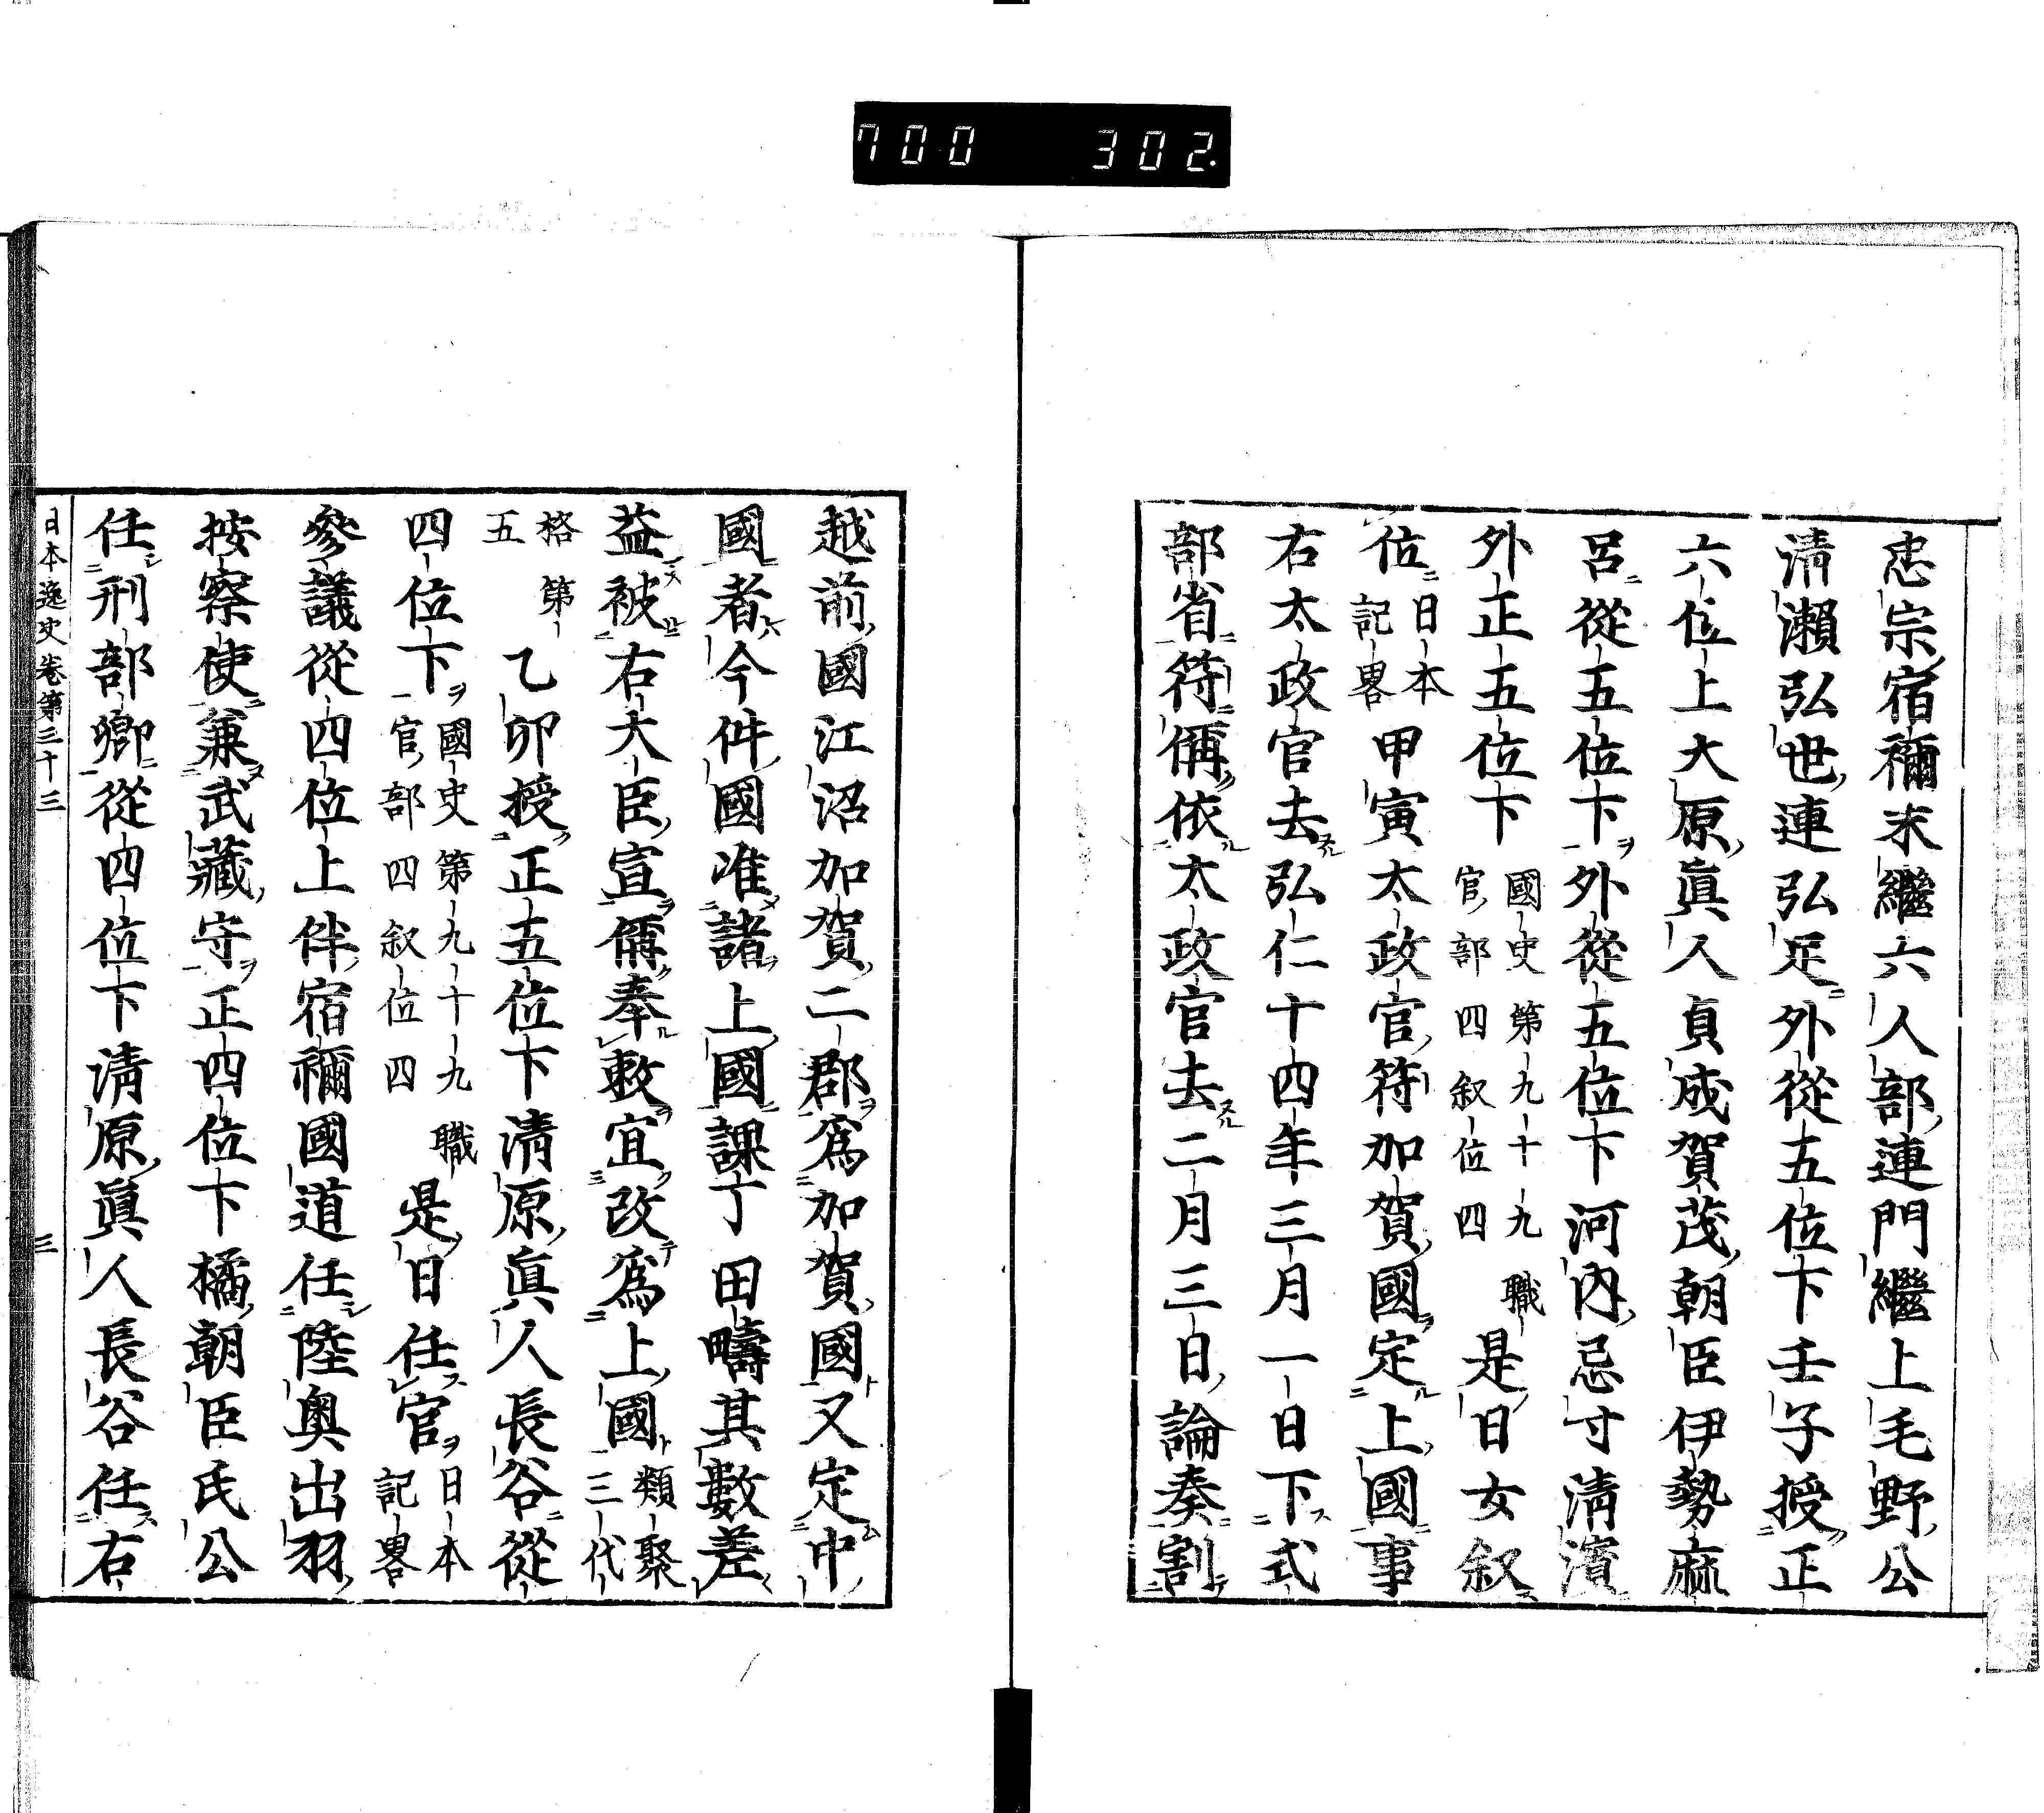 700 302.
忠宗宿禰末繼六人部連門繼上毛野公
清瀨弘世連弘足外從五位下壬子授正
六位上大原眞人貞成賀茂朝臣伊勢麻
呂從五位下外從五位下河內忌寸清濱
外正五位下國史第九十九職官部四叙位四是日女叙
位日本記畧甲寅太政官符加賀國定上國事
右太政官去弘仁十四年三月一日下式
部省符偁依太政官去二月三日論奏割
越前國江沼加賀二郡爲加賀國又定中
國者今件國准諸上國課丁田疇其數差
益被右大臣宣偁奉敕宜改爲上國類聚三代
格第五乙卯授正五位下清原眞人長谷從
四位下國史第九十九職官部四叙位四是日任官日本記畧
參議從四位上伴宿禰國道任陸奧出羽
按察使兼武藏守正四位下橘朝臣氏公
任刑部卿從四位下清原眞人長谷任右
日本逸史卷第三十三 三